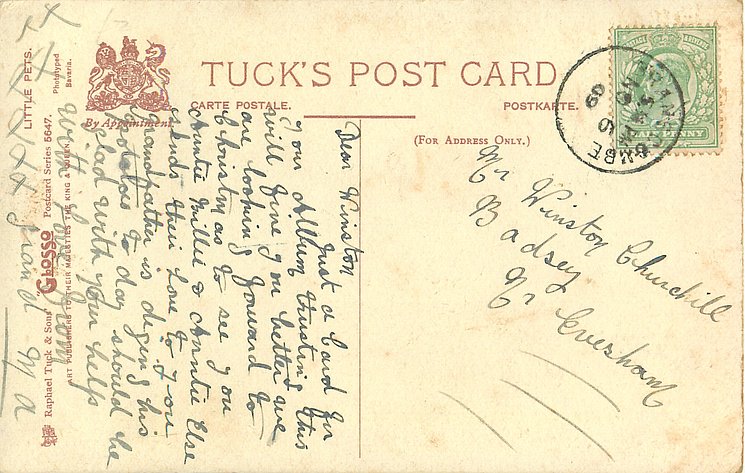 TUCK'S POST CARD
CARTE POSTALE.
POSTKARTE.
By Appointment
(For Address Only.)
LITTLE PETS.
Phototyped
Bavaria.
Raphael Tuck & Sons' "Glosso" Postcard Series 5647.
ART PUBLISHERS TO THEIR MAJESTIES THE KING & QUEEN.
HALF PENNY
Mr Winston Churchill
Badsey
Nr Evesham
Dear Winston
Just a Card for
your Album trusting this
will find you better we
are looking forward to
Christmas to see you
Auntie Millie & Auntie Else
sends their love to you
Grandfather is deging his
potatoes to day should be
glad with your help
with love from
Grand Ma